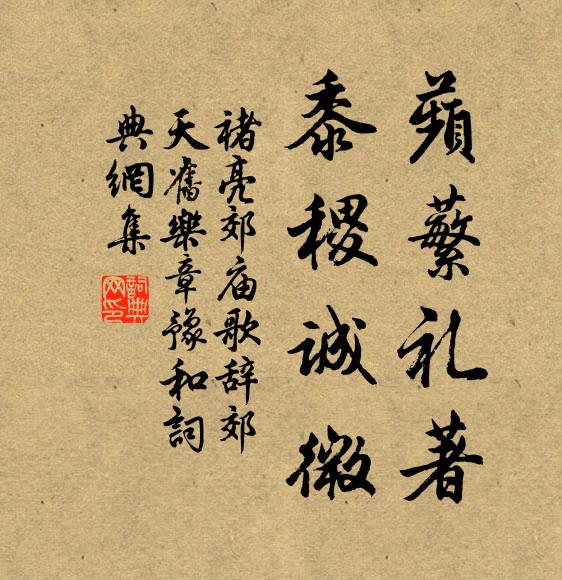 蘋蘩礼著
黍稷诚微
褚亮郊庙歌辞郊
天旧乐章豫和詞
典網集
詞典网印